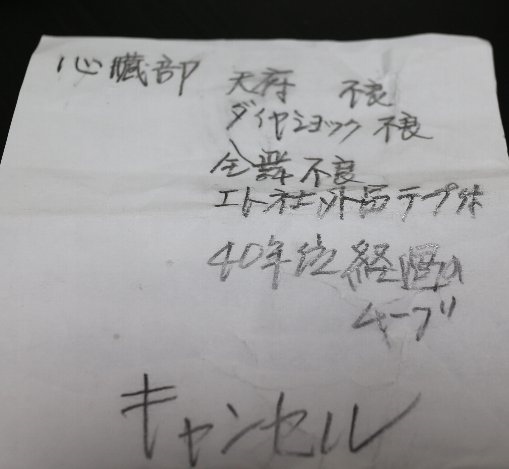 心臓部 天府 不良
ダイヤショック 不良
全舞 不良
エトネセント品テープ
40年位 経過の
ムーブ
キャンセル